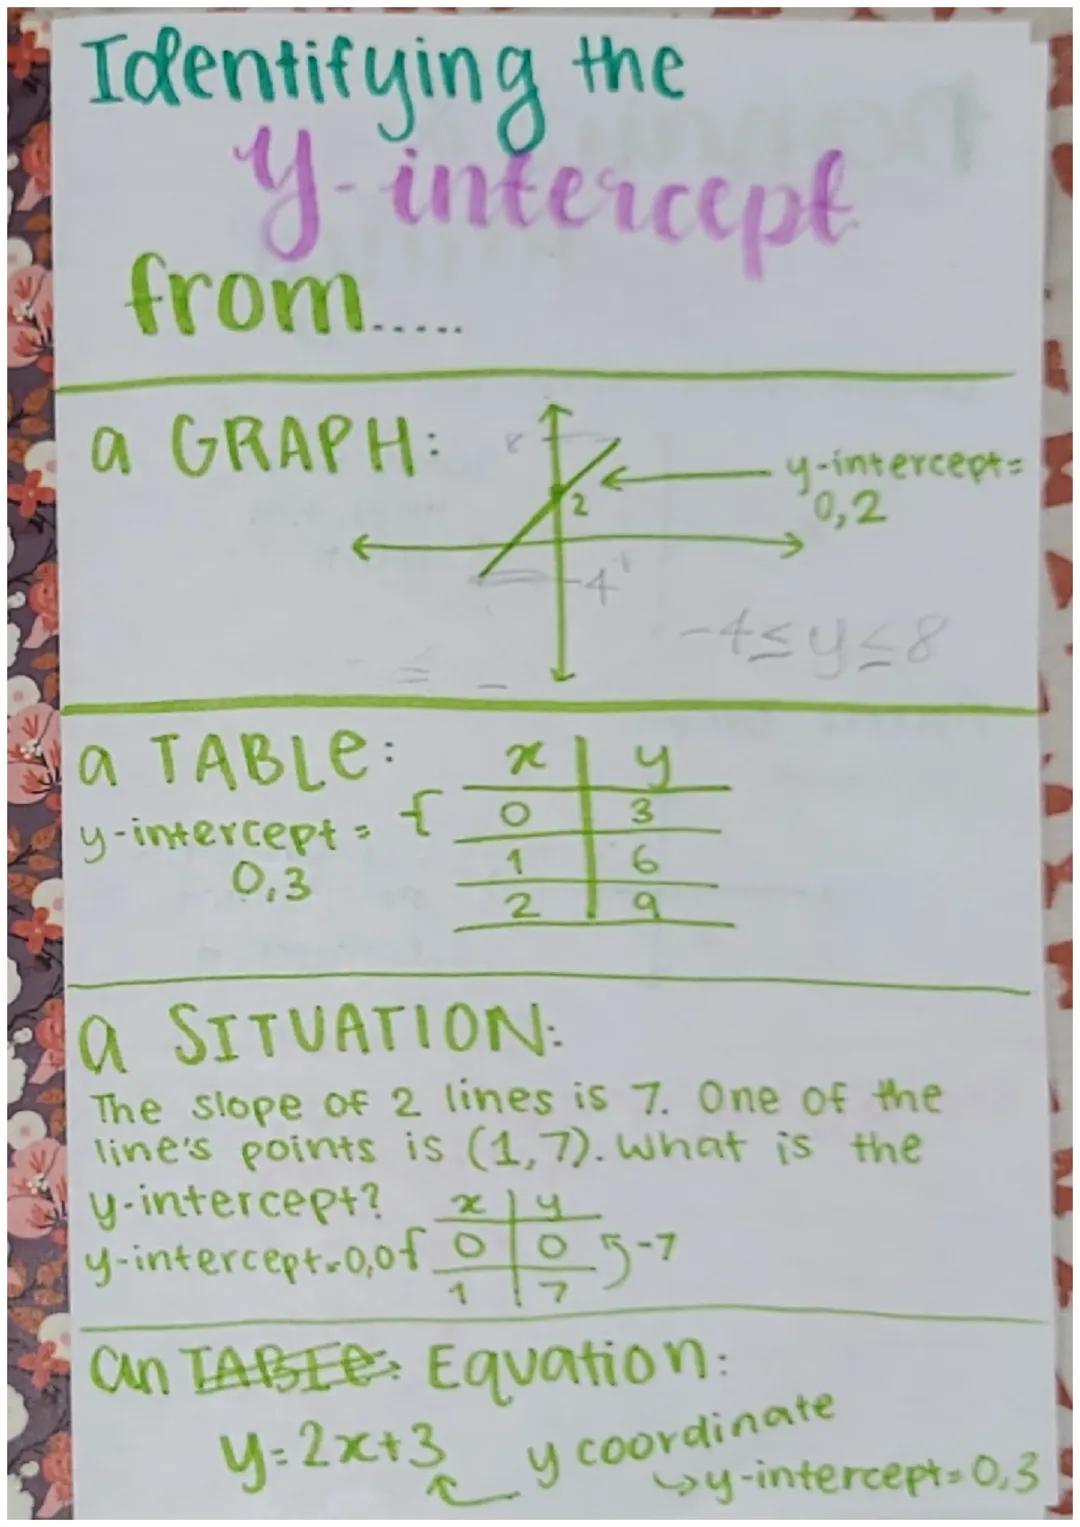 Identifying the
y-intercept
from.....
a GRAPH:
8
y-intercept=
0,2
2
-4
-4≤y≤8
a TABLE:
x y
y-intercept =
0,3
0 3
1 6
2 9
a SITUATION:
The slope of 2 lines is 7. One of the
line's points is (1,7). What is the
y-intercept?
x y
y-intercept=0,0
0 0 -7
1 7
an TABLE: Equation:
y=2x+3
y coordinate
y-intercept=0,3